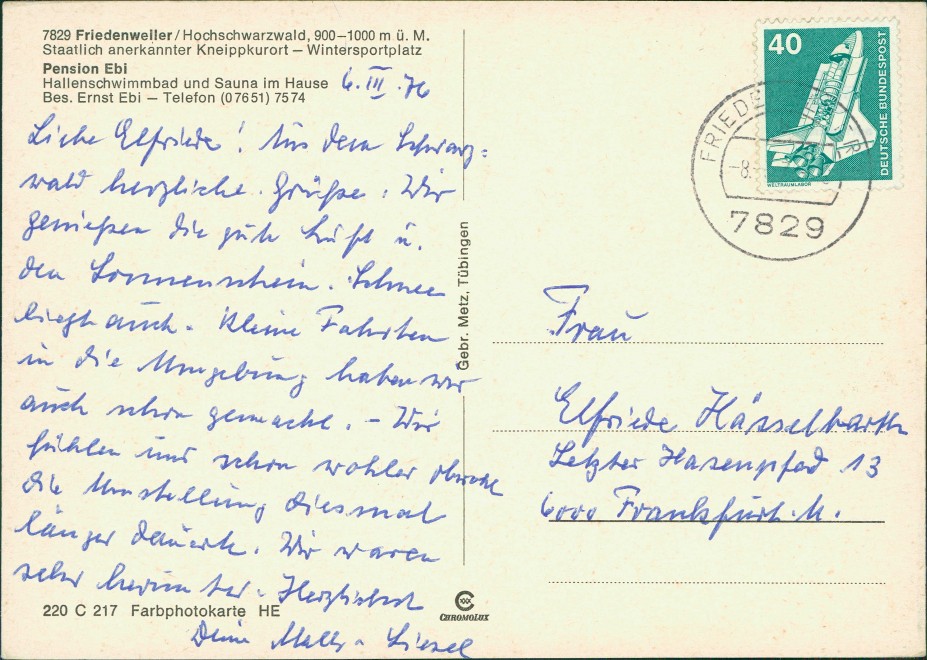 7829 Friedenweiler / Hochschwarzwald, 900–1000 m ü. M.
Staatlich anerkannter Kneippkurort – Wintersportplatz
Pension Ebi
Hallenschwimmbad und Sauna im Hause
Bes. Ernst Ebi – Telefon (07651) 7574
6. III. 76
Liebe Elfriede! Aus dem Schwarz=
wald herzliche Grüße. Wir
genießen die gute Luft u.
den Sonnenschein. Schnee
liegt auch. Kleine Fahrten
in die Umgebung haben wir
auch schon gemacht. – Wir
fühlen uns schon wohler obwohl
die Umstellung diesmal
länger dauerte. Wir waren
sehr herunter. Herzlichst
Deine Liesel
220 C 217 Farbphotokarte HE
CHROMOLUX
Gebr. Metz, Tübingen
40
DEUTSCHE BUNDESPOST
WELTRAUMLABOR
FRIEDE
-8.
7829
Frau
Elfriede Hässelbarth
Letzter Hasenpfad 13
6000 Frankfurt. M.